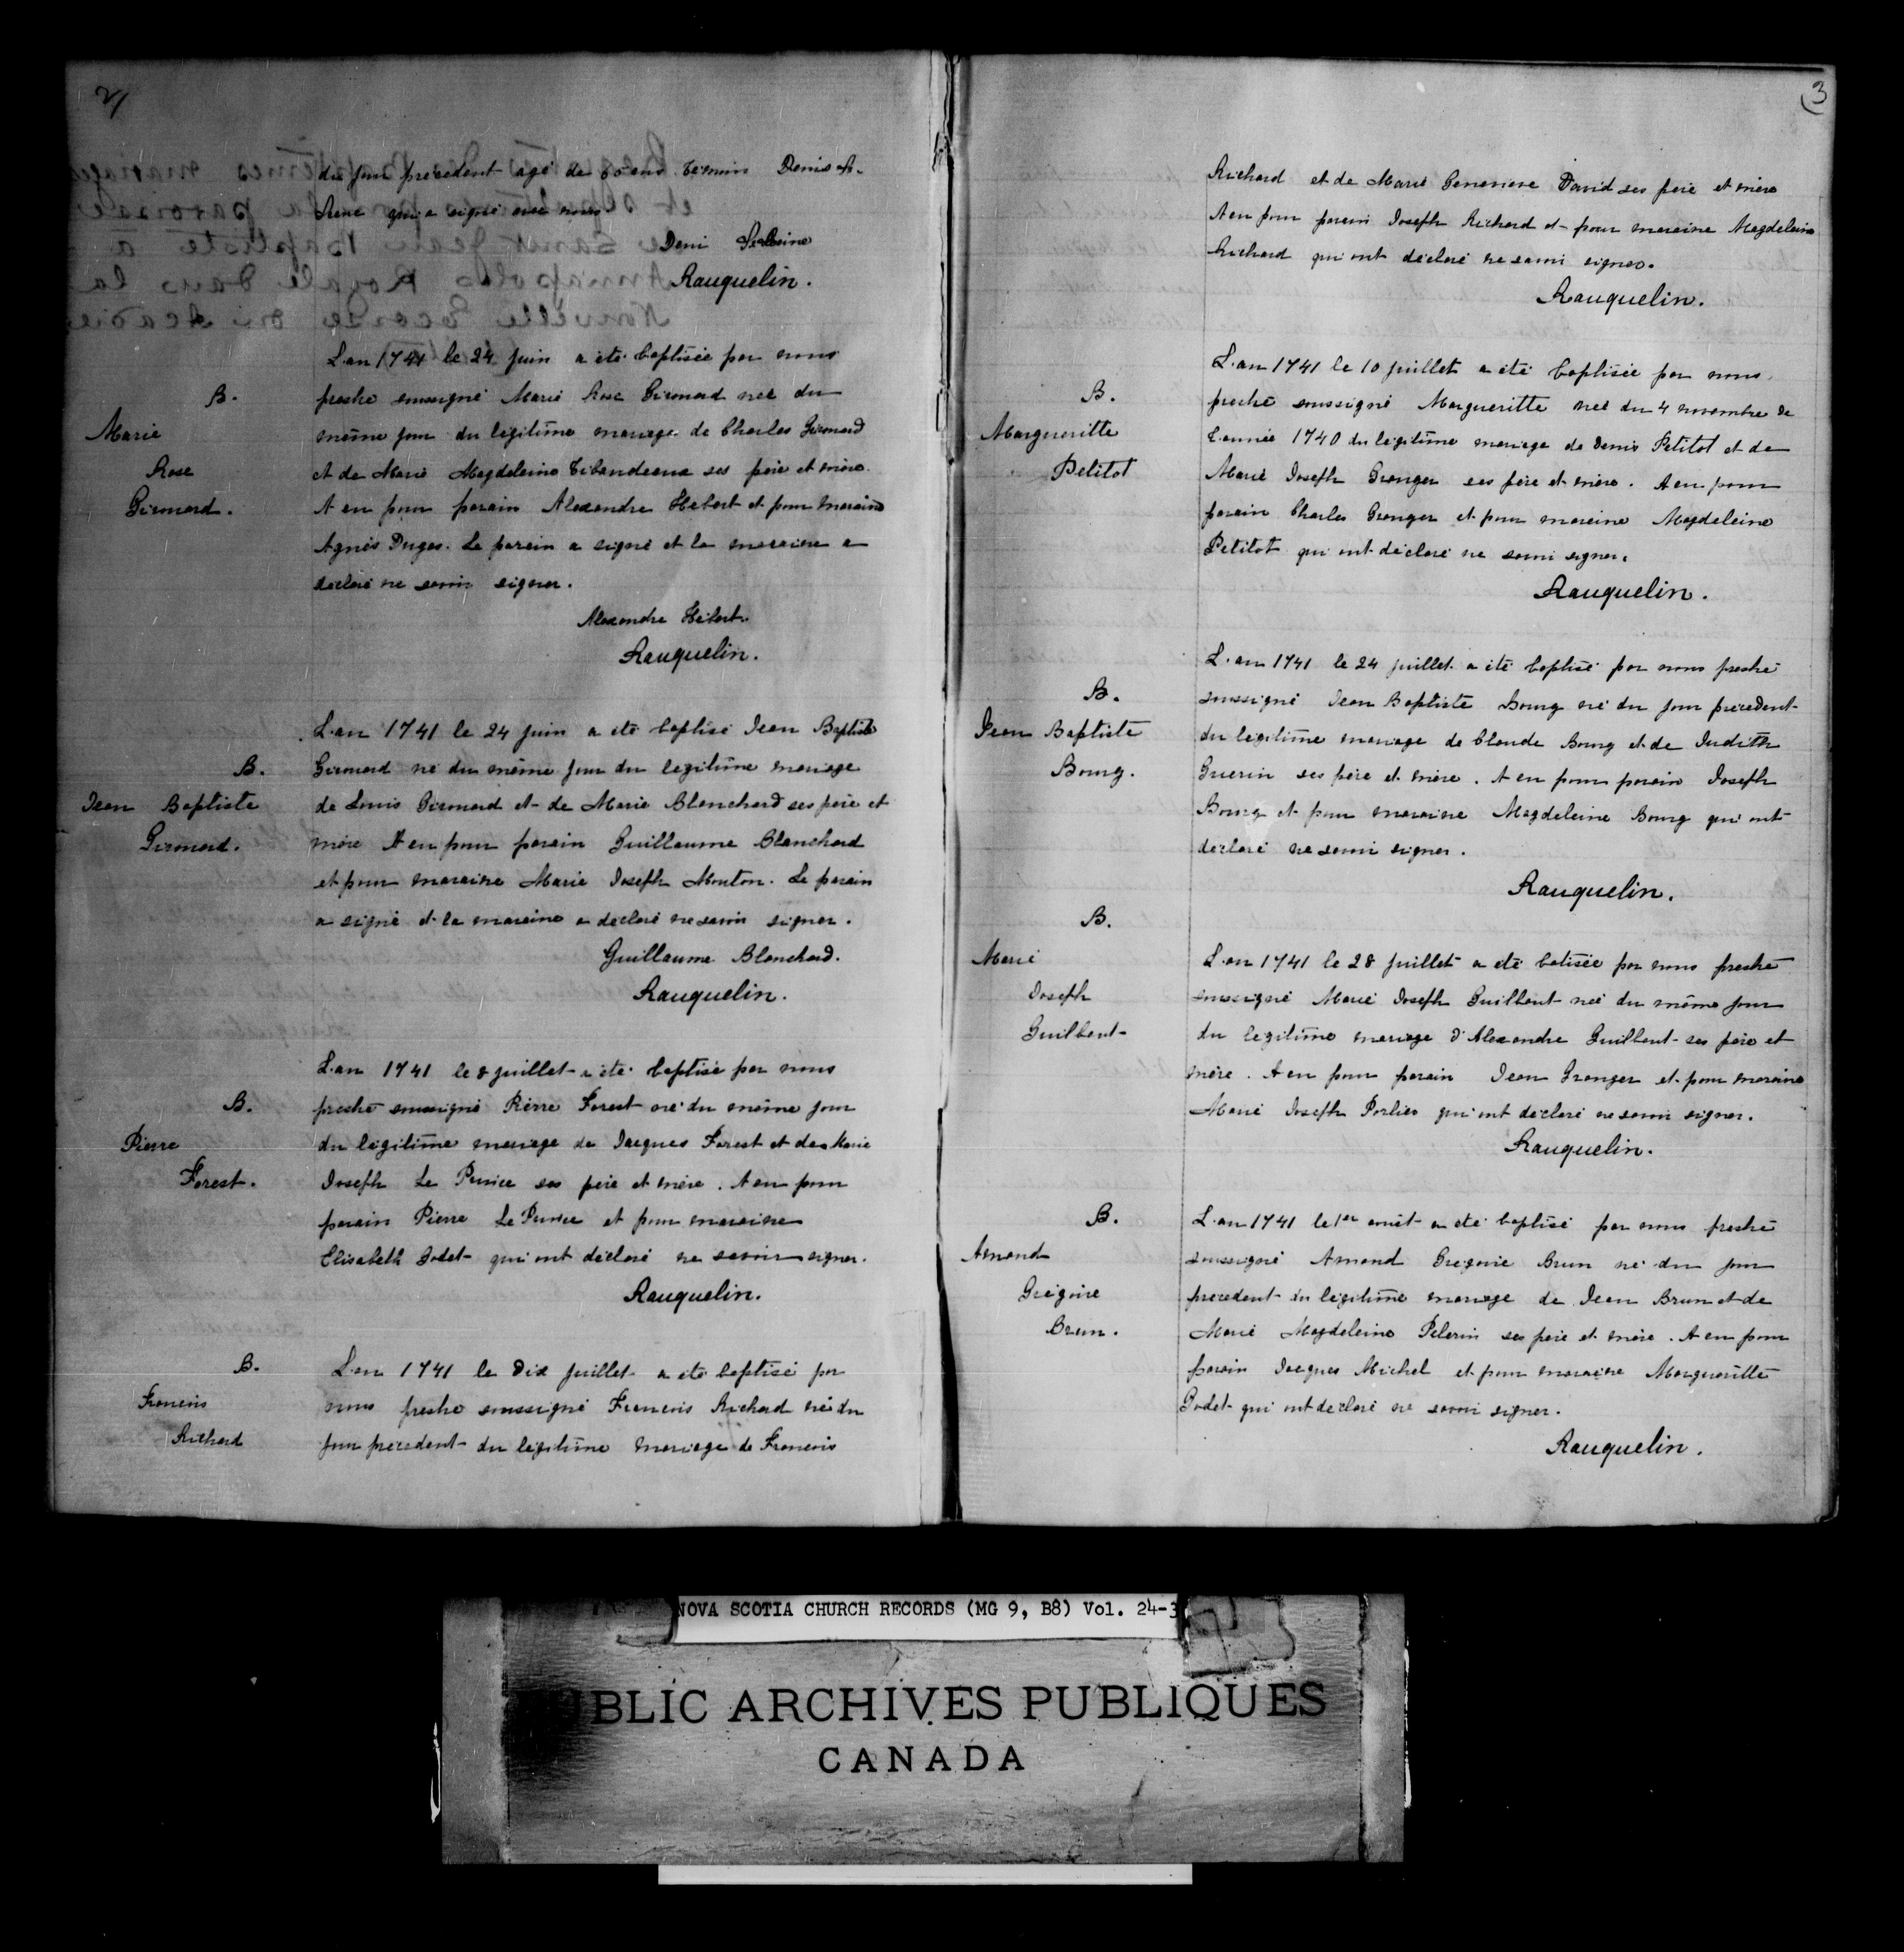 2/
du jour précedent agé de 60 ans. Témoin Denis St.
Sene qui a signé avec nous
Deni St Seine
Rauquelin.
L'an 1741 le 24 juin a été baptisée par nous
B.
prestre soussigné Marie Rose Girouard née du
Marie
même jour du légitime mariage de Charles Girouard
Rose
et de Marie Magdeleine Tibaudeaux ses père et mère.
Girouard.
A eu pour parain Alexandre Hebert et pour maraine
Agnès Dugas. Le parain a signé et la maraine a
déclaré ne savoir signer.
Alexandre Hébert.
Rauquelin.
L'an 1741 le 24 juin a été baptisé Jean Baptiste
B.
Girouard né du même jour du legitime mariage
Jean Baptiste
de Louis Girouard et de Marie Blanchard ses père et
Girouard.
mère A eu pour parain Guillaume Blanchard
et pour maraine Marie Joseph Mouton. Le parain
a signé et la maraine a déclaré ne savoir signer.
Guillaume Blanchard.
Rauquelin.
L'an 1741 le 8 juillet a été baptisé par nous
B.
prestre soussigné Pierre Forest né du même jour
Pierre
du légitime mariage de Jacques Forest et de Marie
Forest.
Joseph Le Prince ses père et mère. A eu pour
parain Pierre Le Prince et pour maraine
Elisabeth Godet qui ont déclaré ne savoir signer.
Rauquelin.
B.
L'an 1741 le dix juillet a été baptisé par
Francois
nous prestre soussigné Francois Richard né du
Richard
jour précedent du légitime mariage de Francois
3
Richard et de Marie Genevieve David ses père et mère
A eu pour parain Joseph Richard et pour maraine Magdeleine
Richard qui ont déclaré ne savoir signer.
Rauquelin.
L'an 1741 le 10 juillet a été baptisée par nous
B.
prestre soussigné Margueritte née du 4 novembre de
Margueritte
l'année 1740 du légitime mariage de Denis Petitot et de
Petitot
Marie Joseph Granger ses père et mère. A eu pour
parain Charles Granger et pour maraine Magdeleine
Petitot qui ont déclaré ne savoir signer.
Rauquelin.
L'an 1741 le 24 juillet a été baptisé par nous prestre
B.
soussigné Jean Baptiste Bourg né du jour précedent
Jean Baptiste
du legitime mariage de Claude Bourg et de Judith
Bourg.
Guerin ses père et mère. A eu pour parain Joseph
Bourg et pour maraine Magdeleine Bourg qui ont
déclaré ne savoir signer.
Rauquelin.
B.
Marie
L'an 1741 le 28 juillet a été batisée par nous prestre
Joseph
soussigné Marie Joseph Guilbaut née du même jour
Guilbaut
du legitime mariage d'Alexandre Guilbaut ses père et
mère. A eu pour parain Jean Granger et pour maraine
Marie Joseph Porlier qui ont déclaré ne savoir signer.
Rauquelin.
B.
L'an 1741 le 1er aoüt a été baptisé par nous prestre
Amand
soussigné Amand Gregoire Brun né du jour
Grégoire
precedent du légitime mariage de Jean Brun et de
Brun.
Marie Magdeleine Pelerin ses père et mère. A eu pour
parain Jacques Michel et pour maraine Margueritte
Godet qui ont déclaré ne savoir signer.
Rauquelin.
NOVA SCOTIA CHURCH RECORDS (MG 9, B8) Vol. 24-3
PUBLIC ARCHIVES PUBLIQUES
CANADA